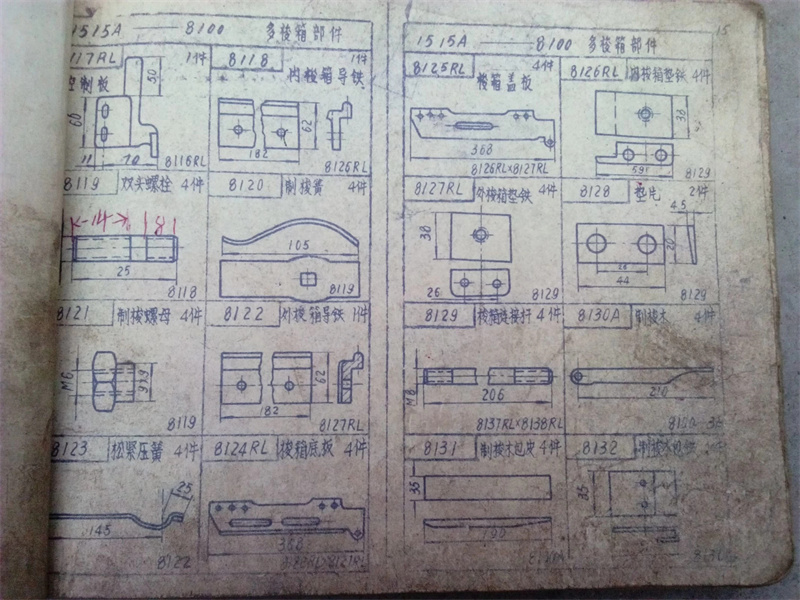 1515A —— 8100 多梭箱部件
117RL 1件
控制板
50
60
11 70
8116RL
8118 1件
内梭箱导铁
62
182
8126RL
8119 双头螺栓 4件
14 18
25
8118
8120 制梭簧 4件
105
8119
8121 制梭螺母 4件
M6
8119
8122 外梭箱导铁 1件
62
182
8127RL
8123 松紧压簧 4件
25
145
8122
8124RL 梭箱底板 4件
368
1515A —— 8100 多梭箱部件
15
8125RL 4件
梭箱盖板
368
8126RL×8127RL
8126RL 梭箱垫铁 4件
38
59
8129
8127RL 外梭箱垫铁 4件
38
26
8129
8128 垫片 2件
4.5
20
44
8129
8129 梭箱连接杆 4件
M8
206
8137RL×8138RL
8130A 制梭木 4件
210
8131 制梭木包皮 4件
35
190
8132 制梭木包铁 4件
35